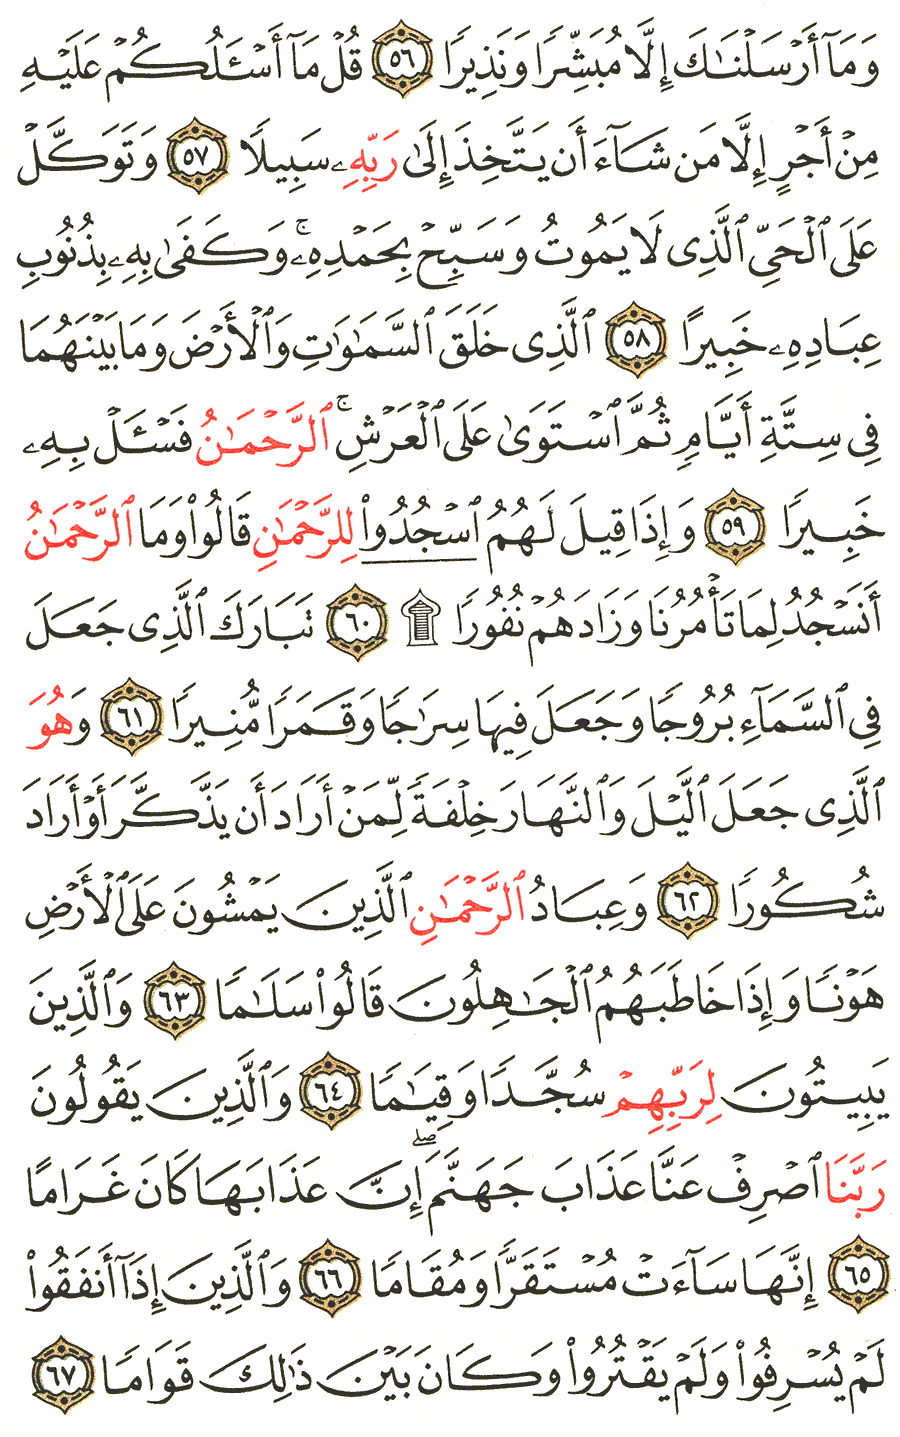 وَمَآ أَرْسَلْنَٰكَ إِلَّا مُبَشِّرًا وَنَذِيرًا ٥٦ قُلْ مَآ أَسْـَٔلُكُمْ عَلَيْهِ
مِنْ أَجْرٍ إِلَّا مَن شَآءَ أَن يَتَّخِذَ إِلَىٰ رَبِّهِۦ سَبِيلًا ٥٧ وَتَوَكَّلْ
عَلَى ٱلْحَىِّ ٱلَّذِى لَا يَمُوتُ وَسَبِّحْ بِحَمْدِهِۦ ۚ وَكَفَىٰ بِهِۦ بِذُنُوبِ
عِبَادِهِۦ خَبِيرًا ٥٨ ٱلَّذِى خَلَقَ ٱلسَّمَٰوَٰتِ وَٱلْأَرْضَ وَمَا بَيْنَهُمَا
فِى سِتَّةِ أَيَّامٍ ثُمَّ ٱسْتَوَىٰ عَلَى ٱلْعَرْشِ ۚ ٱلرَّحْمَٰنُ فَسْـَٔلْ بِهِۦ
خَبِيرًا ٥٩ وَإِذَا قِيلَ لَهُمُ ٱسْجُدُوا۟ لِلرَّحْمَٰنِ قَالُوا۟ وَمَا ٱلرَّحْمَٰنُ
أَنَسْجُدُ لِمَا تَأْمُرُنَا وَزَادَهُمْ نُفُورًا ۩ ٦٠ تَبَارَكَ ٱلَّذِى جَعَلَ
فِى ٱلسَّمَآءِ بُرُوجًا وَجَعَلَ فِيهَا سِرَٰجًا وَقَمَرًا مُّنِيرًا ٦١ وَهُوَ
ٱلَّذِى جَعَلَ ٱلَّيْلَ وَٱلنَّهَارَ خِلْفَةً لِّمَنْ أَرَادَ أَن يَذَّكَّرَ أَوْ أَرَادَ
شُكُورًا ٦٢ وَعِبَادُ ٱلرَّحْمَٰنِ ٱلَّذِينَ يَمْشُونَ عَلَى ٱلْأَرْضِ
هَوْنًا وَإِذَا خَاطَبَهُمُ ٱلْجَٰهِلُونَ قَالُوا۟ سَلَٰمًا ٦٣ وَٱلَّذِينَ
يَبِيتُونَ لِرَبِّهِمْ سُجَّدًا وَقِيَٰمًا ٦٤ وَٱلَّذِينَ يَقُولُونَ
رَبَّنَا ٱصْرِفْ عَنَّا عَذَابَ جَهَنَّمَ ۖ إِنَّ عَذَابَهَا كَانَ غَرَامًا
٦٥ إِنَّهَا سَآءَتْ مُسْتَقَرًّا وَمُقَامًا ٦٦ وَٱلَّذِينَ إِذَآ أَنفَقُوا۟
لَمْ يُسْرِفُوا۟ وَلَمْ يَقْتُرُوا۟ وَكَانَ بَيْنَ ذَٰلِكَ قَوَامًا ٦٧